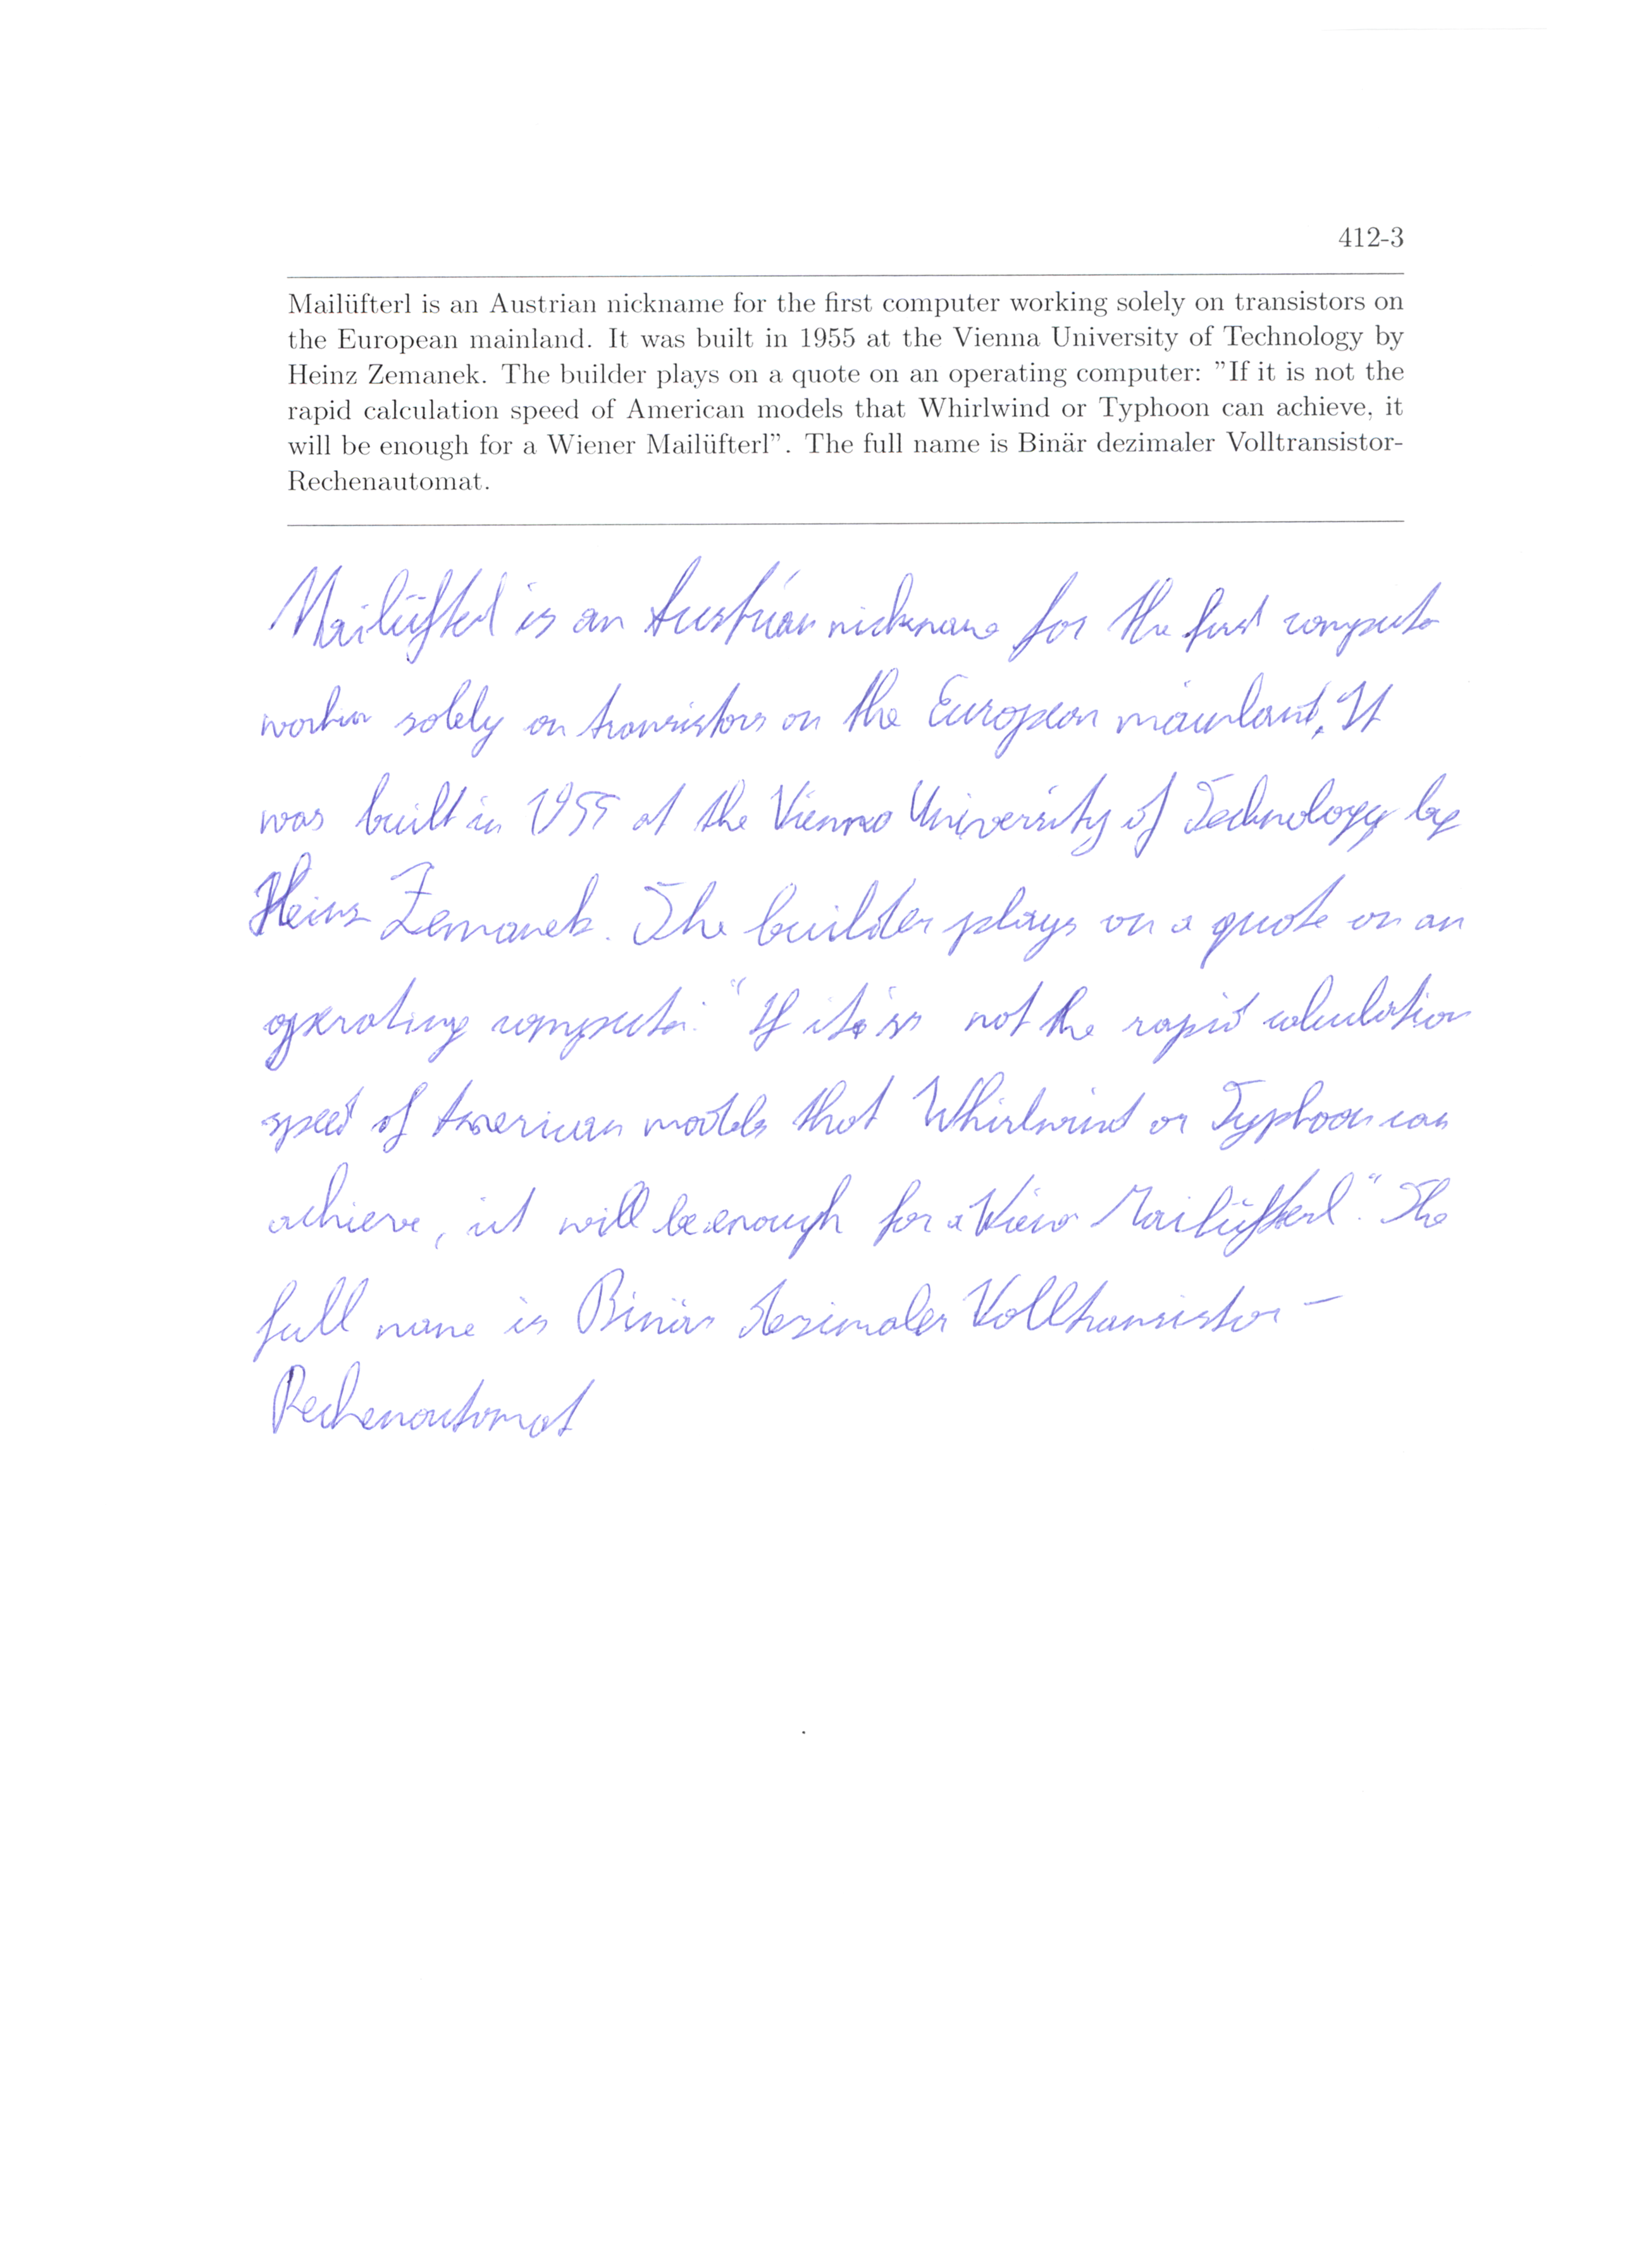 412-3
Mailüfterl is an Austrian nickname for the first computer working solely on transistors on
the European mainland. It was built in 1955 at the Vienna University of Technology by
Heinz Zemanek. The builder plays on a quote on an operating computer: "If it is not the
rapid calculation speed of American models that Whirlwind or Typhoon can achieve, it
will be enough for a Wiener Mailüfterl". The full name is Binär dezimaler Volltransistor-
Rechenautomat.
Mailüfterl is an Austrian nickname for the first computer
workin solely on transistors on the European mainland. It
was built in 1955 at the Vienna University of Technology by
Heinz Zemanek. The builder plays on a quote on an
operating computer: "If it is not the rapid calculation
speed of American models that Whirlwind or Typhoon can
achieve, it will be enough for a Wiener Mailüfterl". The
full name is Binär dezimaler Volltransistor-
Rechenautomat